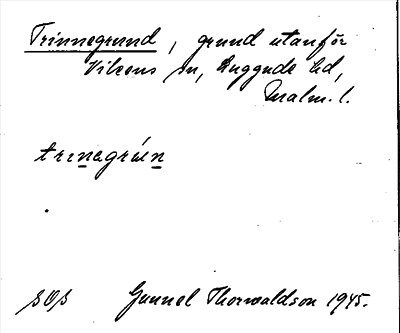 Trinnegrund, grund utanför
Vikens sn, Luggude hd,
Malm. l.
trinegrúen
SOS Gunnel Thorwaldson 1945.